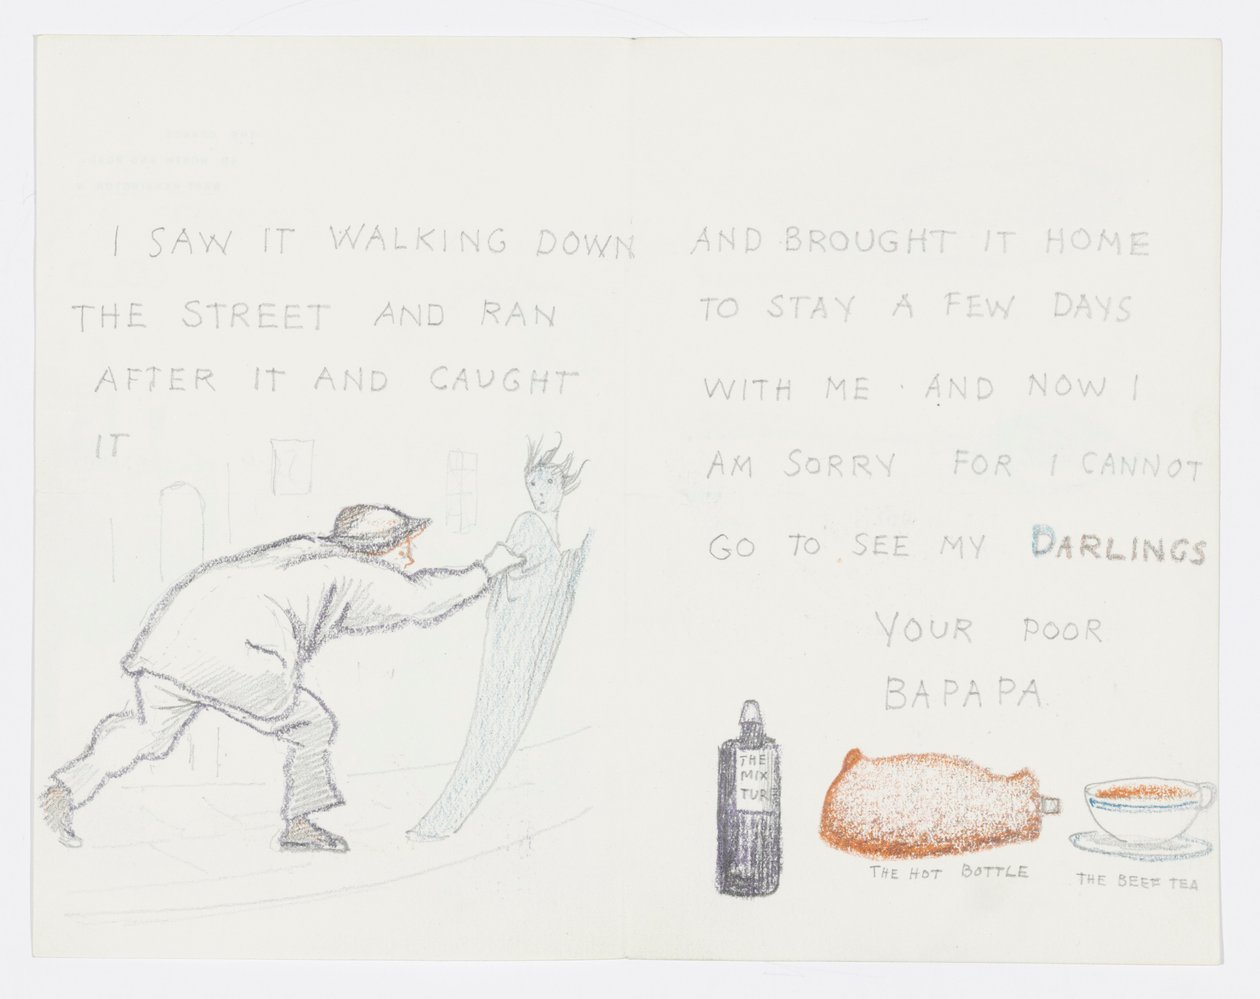 I SAW IT WALKING DOWN
THE STREET AND RAN
AFTER IT AND CAUGHT
IT
AND BROUGHT IT HOME
TO STAY A FEW DAYS
WITH ME · AND NOW I
AM SORRY FOR I CANNOT
GO TO SEE MY DARLINGS
YOUR POOR
BAPAPA
THE
MIX
TURE
THE HOT BOTTLE
THE BEEF TEA